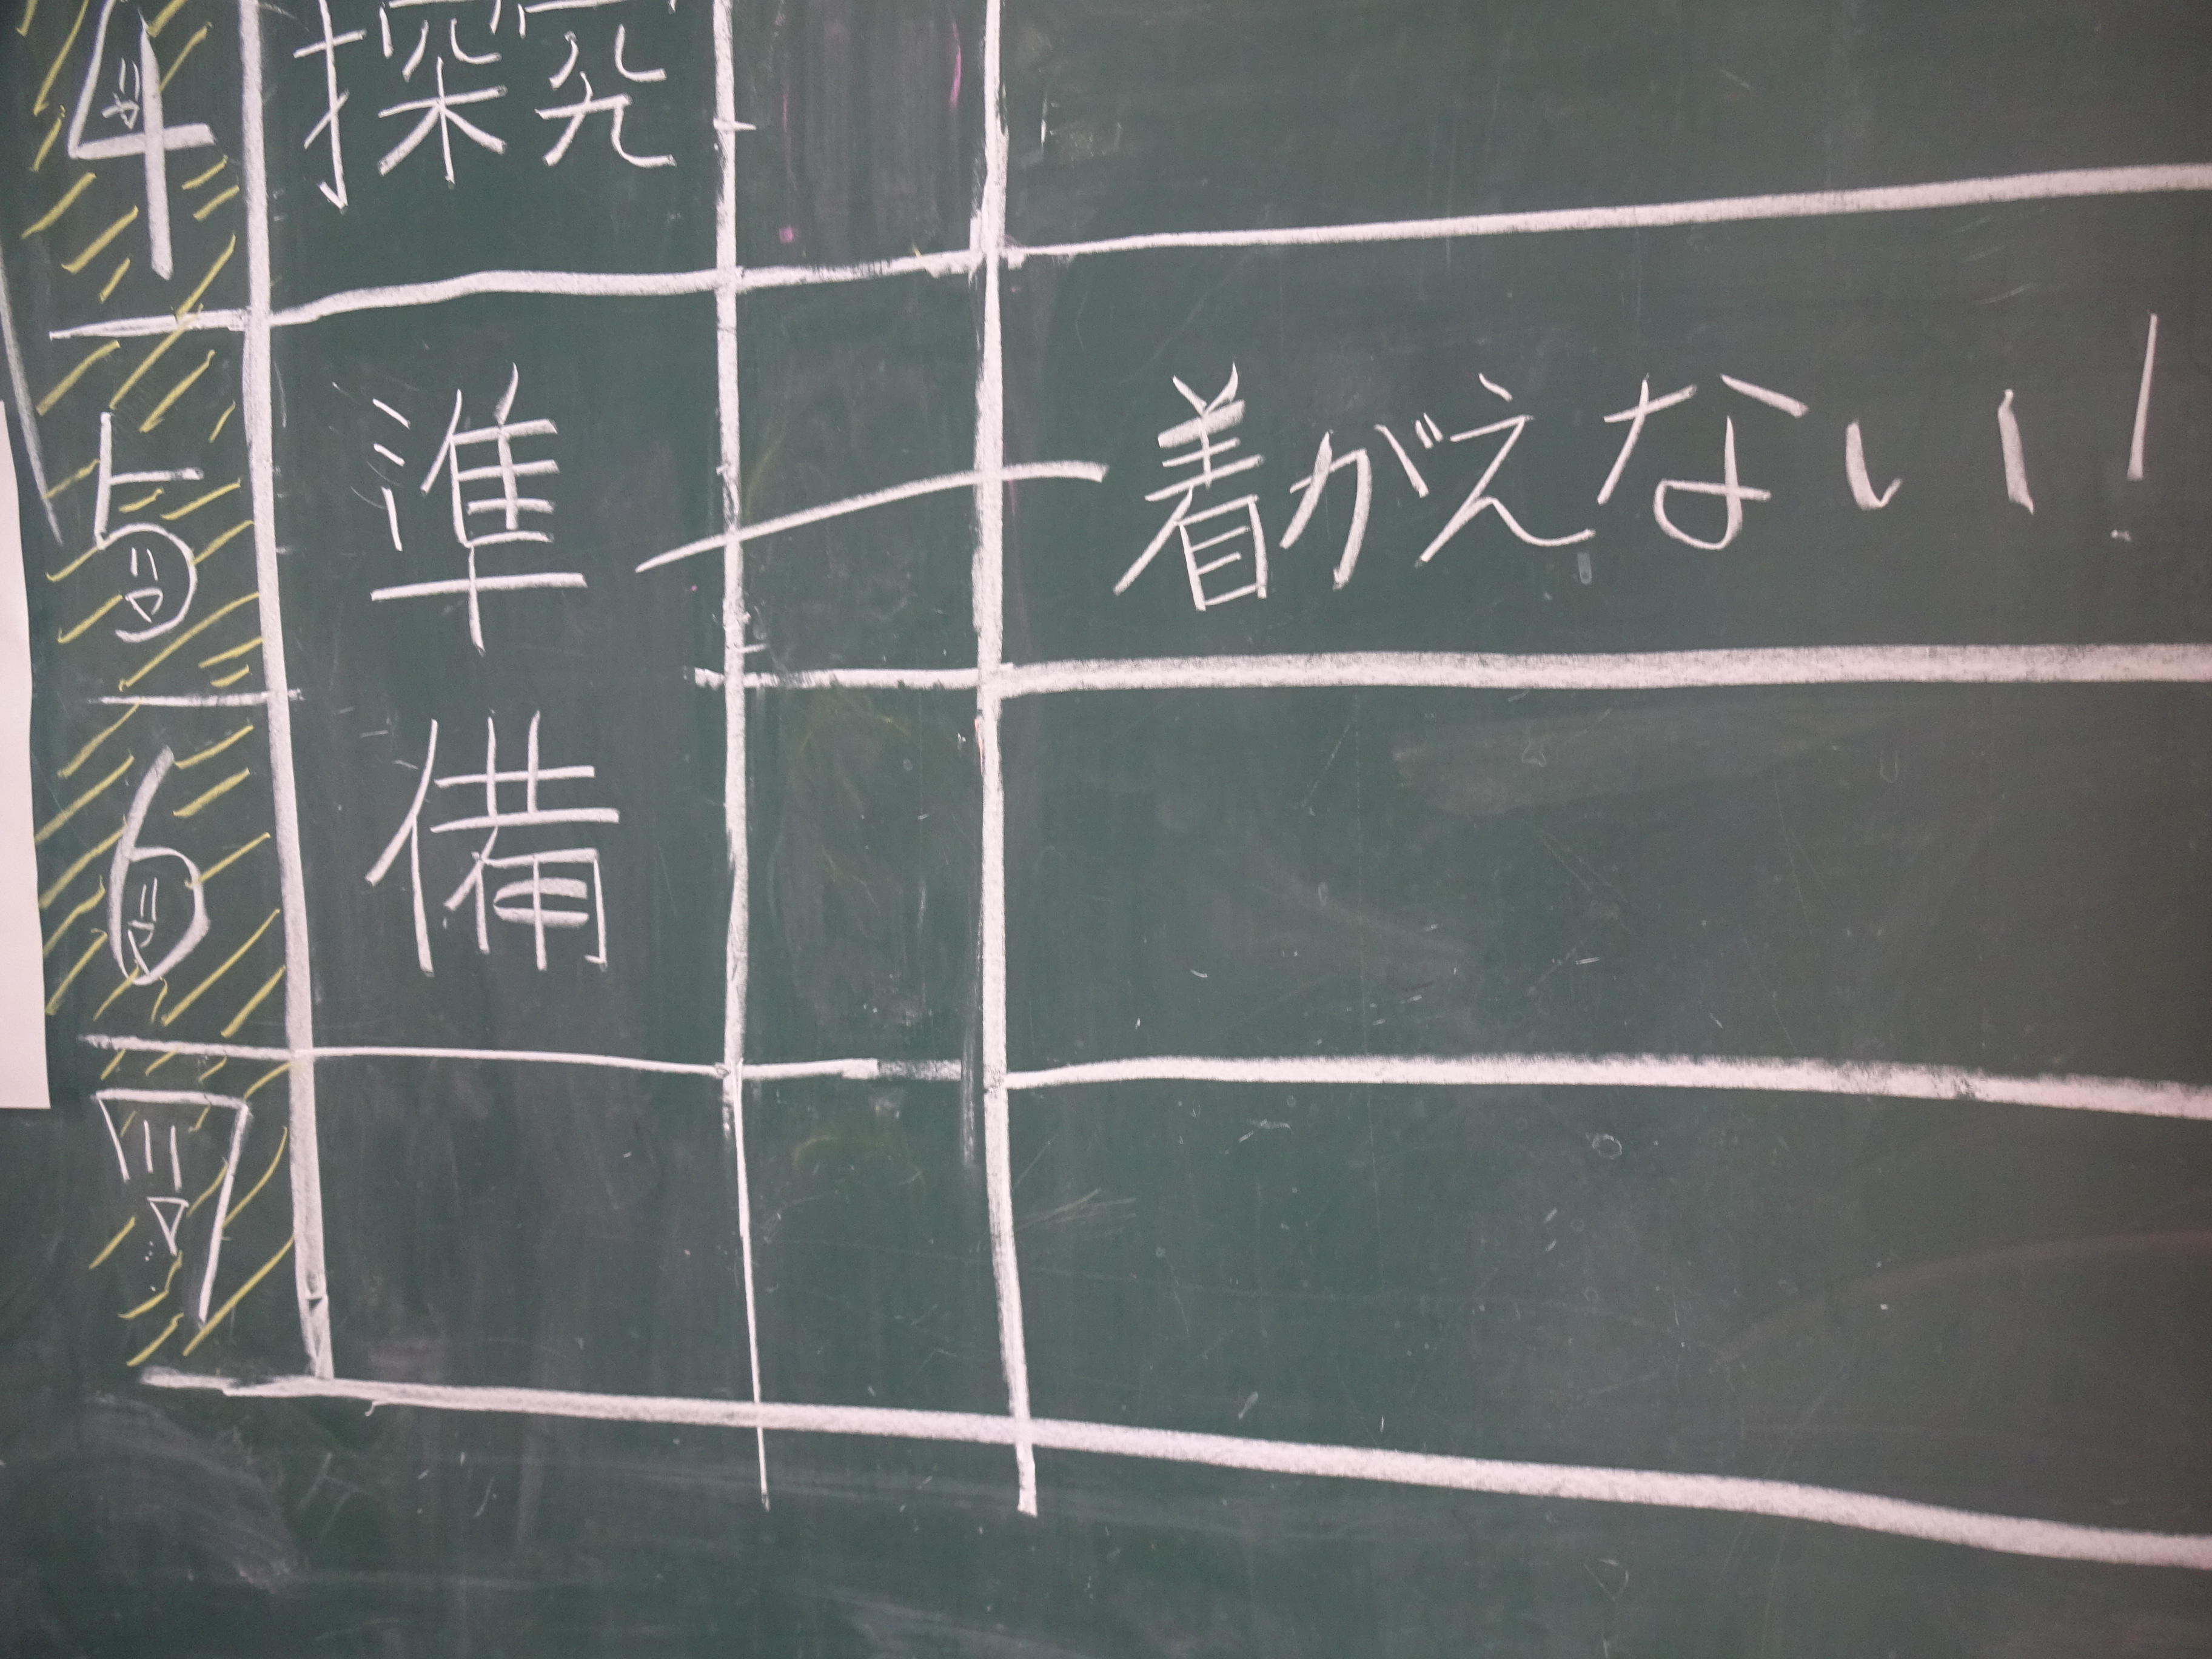 4 探究
5 準備 着がえない!!
6
7